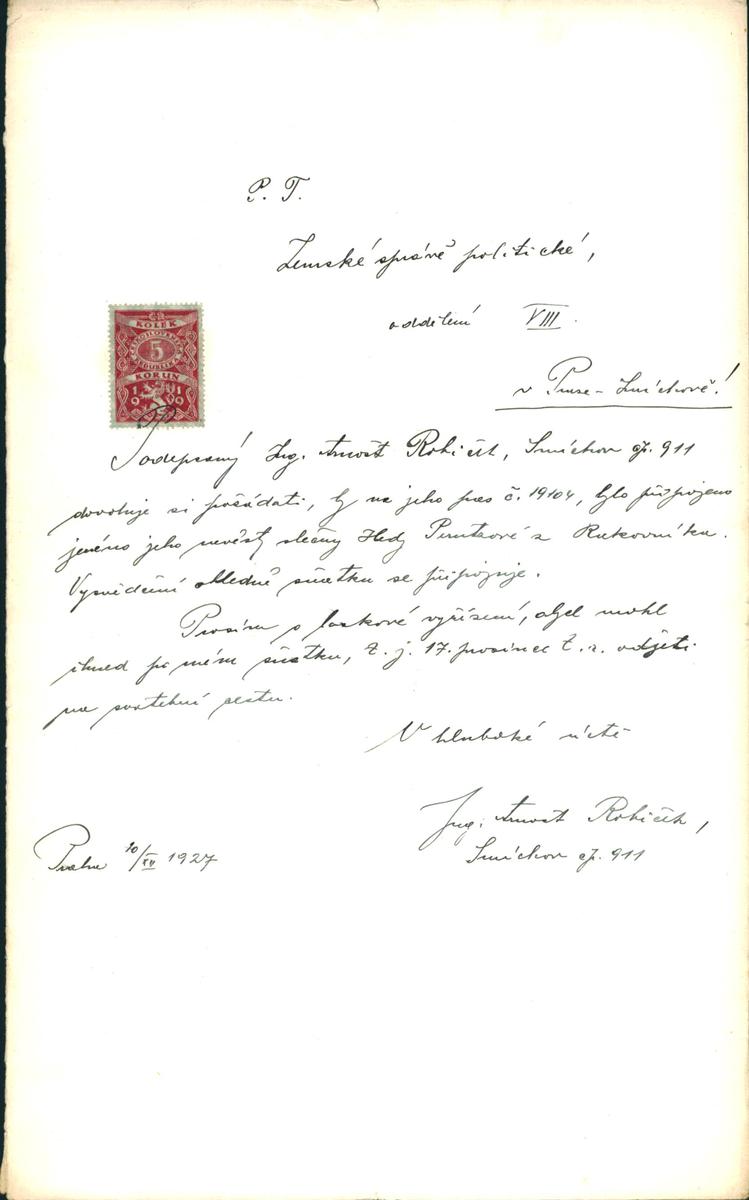 P. T.
Zemské správě politické,
oddělení VIII.
v Praze-Smíchově!
KOLEK
ČESKOSLOVENSKÁ
5
REPUBLIKA
KORUN
1919
Podepsaný Ing. Arnošt Robiček, Smíchov čp. 911
dovoluje si požádati, by na jeho pas č. 19104, bylo připojeno
jméno jeho nevěsty slečny Hedy Perutzové z Rakovníka.
Vysvědčení ohledně sňatku se připojuje.
Prosím o laskavé vyřízení, abych mohl
ihned po mém sňatku, t. j. 17. prosince t. r. odjeti
na svatební cestu.
V hluboké úctě
Ing. Arnošt Robiček,
Smíchov čp. 911
Praha 10/XII 1927